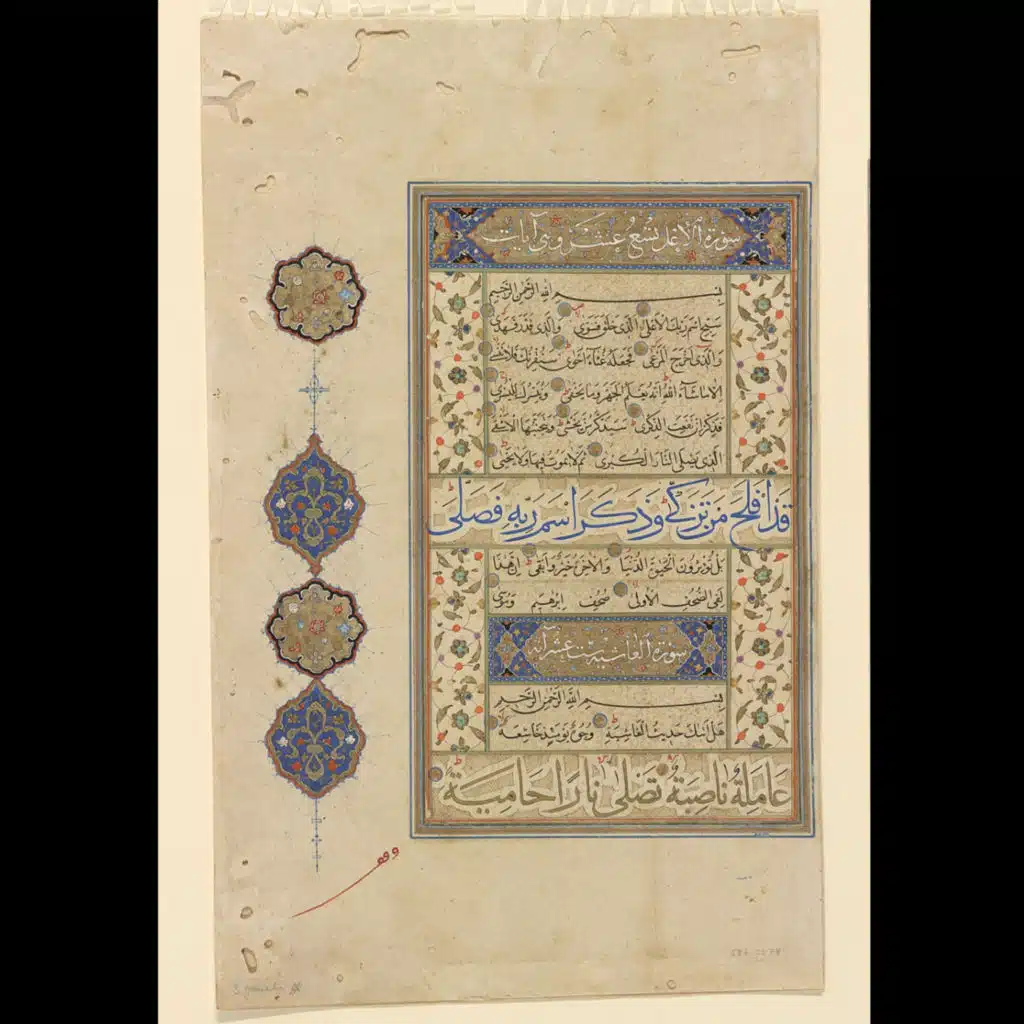 سورة الأعلى تسع عشر وهي آيات
بسم الله الرحمن الرحيم
سبح اسم ربك الأعلى الذي خلق فسوى والذي قدر فهدى
والذي أخرج المرعى فجعله غثاء أحوى سنقرئك فلا تنسى
إلا ما شاء الله إنه يعلم الجهر وما يخفى ونيسرك لليسرى
فذكر إن نفعت الذكرى سيذكر من يخشى ويتجنبها الأشقى
الذي يصلى النار الكبرى ثم لا يموت فيها ولا يحيى
قد أفلح من تزكى وذكر اسم ربه فصلى
بل تؤثرون الحيوة الدنيا والآخرة خير وأبقى إن هذا
لفي الصحف الأولى صحف إبرهيم وموسى
سورة الغاشية ست عشر آية
بسم الله الرحمن الرحيم
هل أتىك حديث الغاشية وجوه يومئذ خاشعة
عاملة ناصبة تصلى نارا حامية
وقف